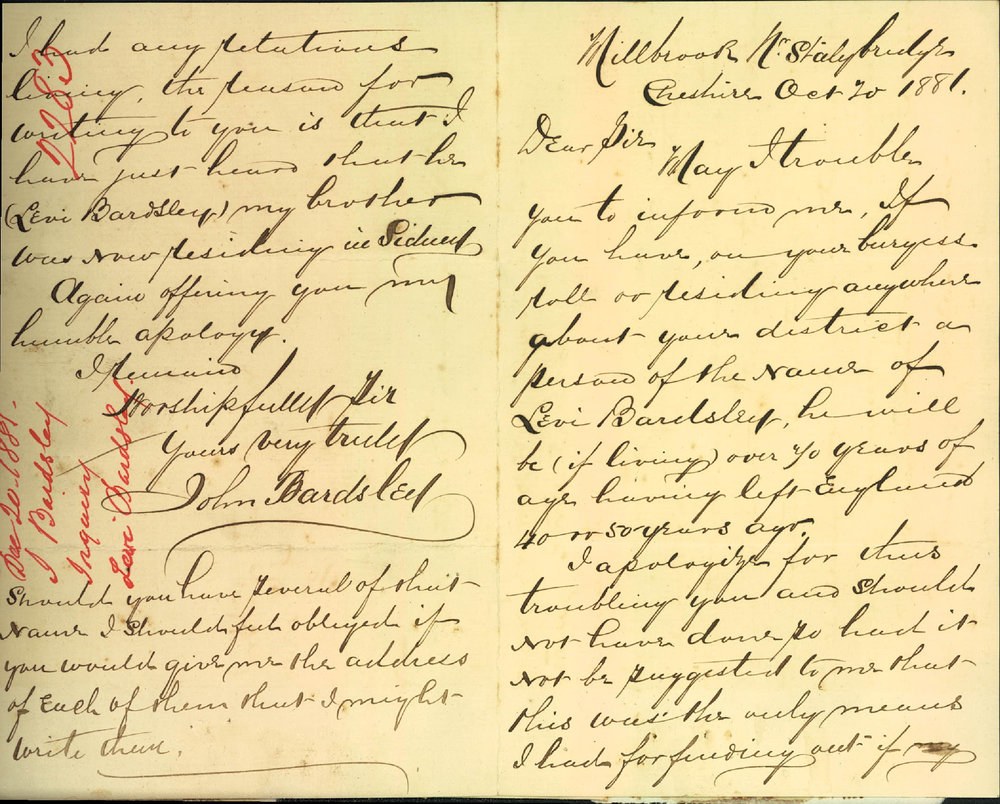 Millbrook Nr. Stalybridge
Cheshire Oct 20 1881.
Dear Sir
May I trouble
you to inform me, If
you have, on your burgess
roll or residing anywhere
about your district a
person of the Name of
Levi Bardsley, he will
be (if living) over 70 years of
age having left England
40 or 50 years ago.
I apologize for thus
troubling you and should
Not have done so had it
Not be suggested to me that
this was the only means
I had for finding out if my
I had any relations
living, the reason for
writing to you is that I
have just heard that he
(Levi Bardsley) my brother
was Now residing in Sidney
Again offering you my
humble apology.
I remain
Worshipfully Sir
Yours very truly
John Bardsley
Should you have several of that
Name I should feel obliged if
you would give me the address
of Each of them that I might
write them.
2283
Dec 20. 1881.
J Bardsley
Inquiry
Levi Bardsley